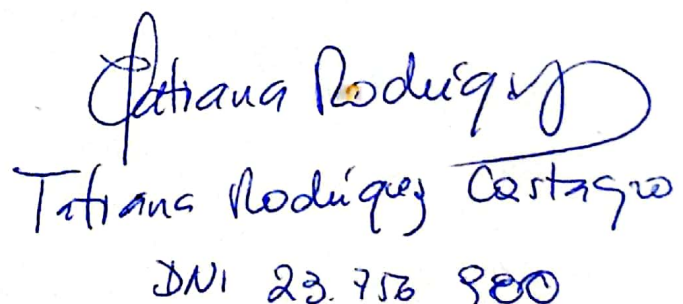 Tatiana Rodríguez
Tatiana Rodríguez Castagno
DNI 23.756 980